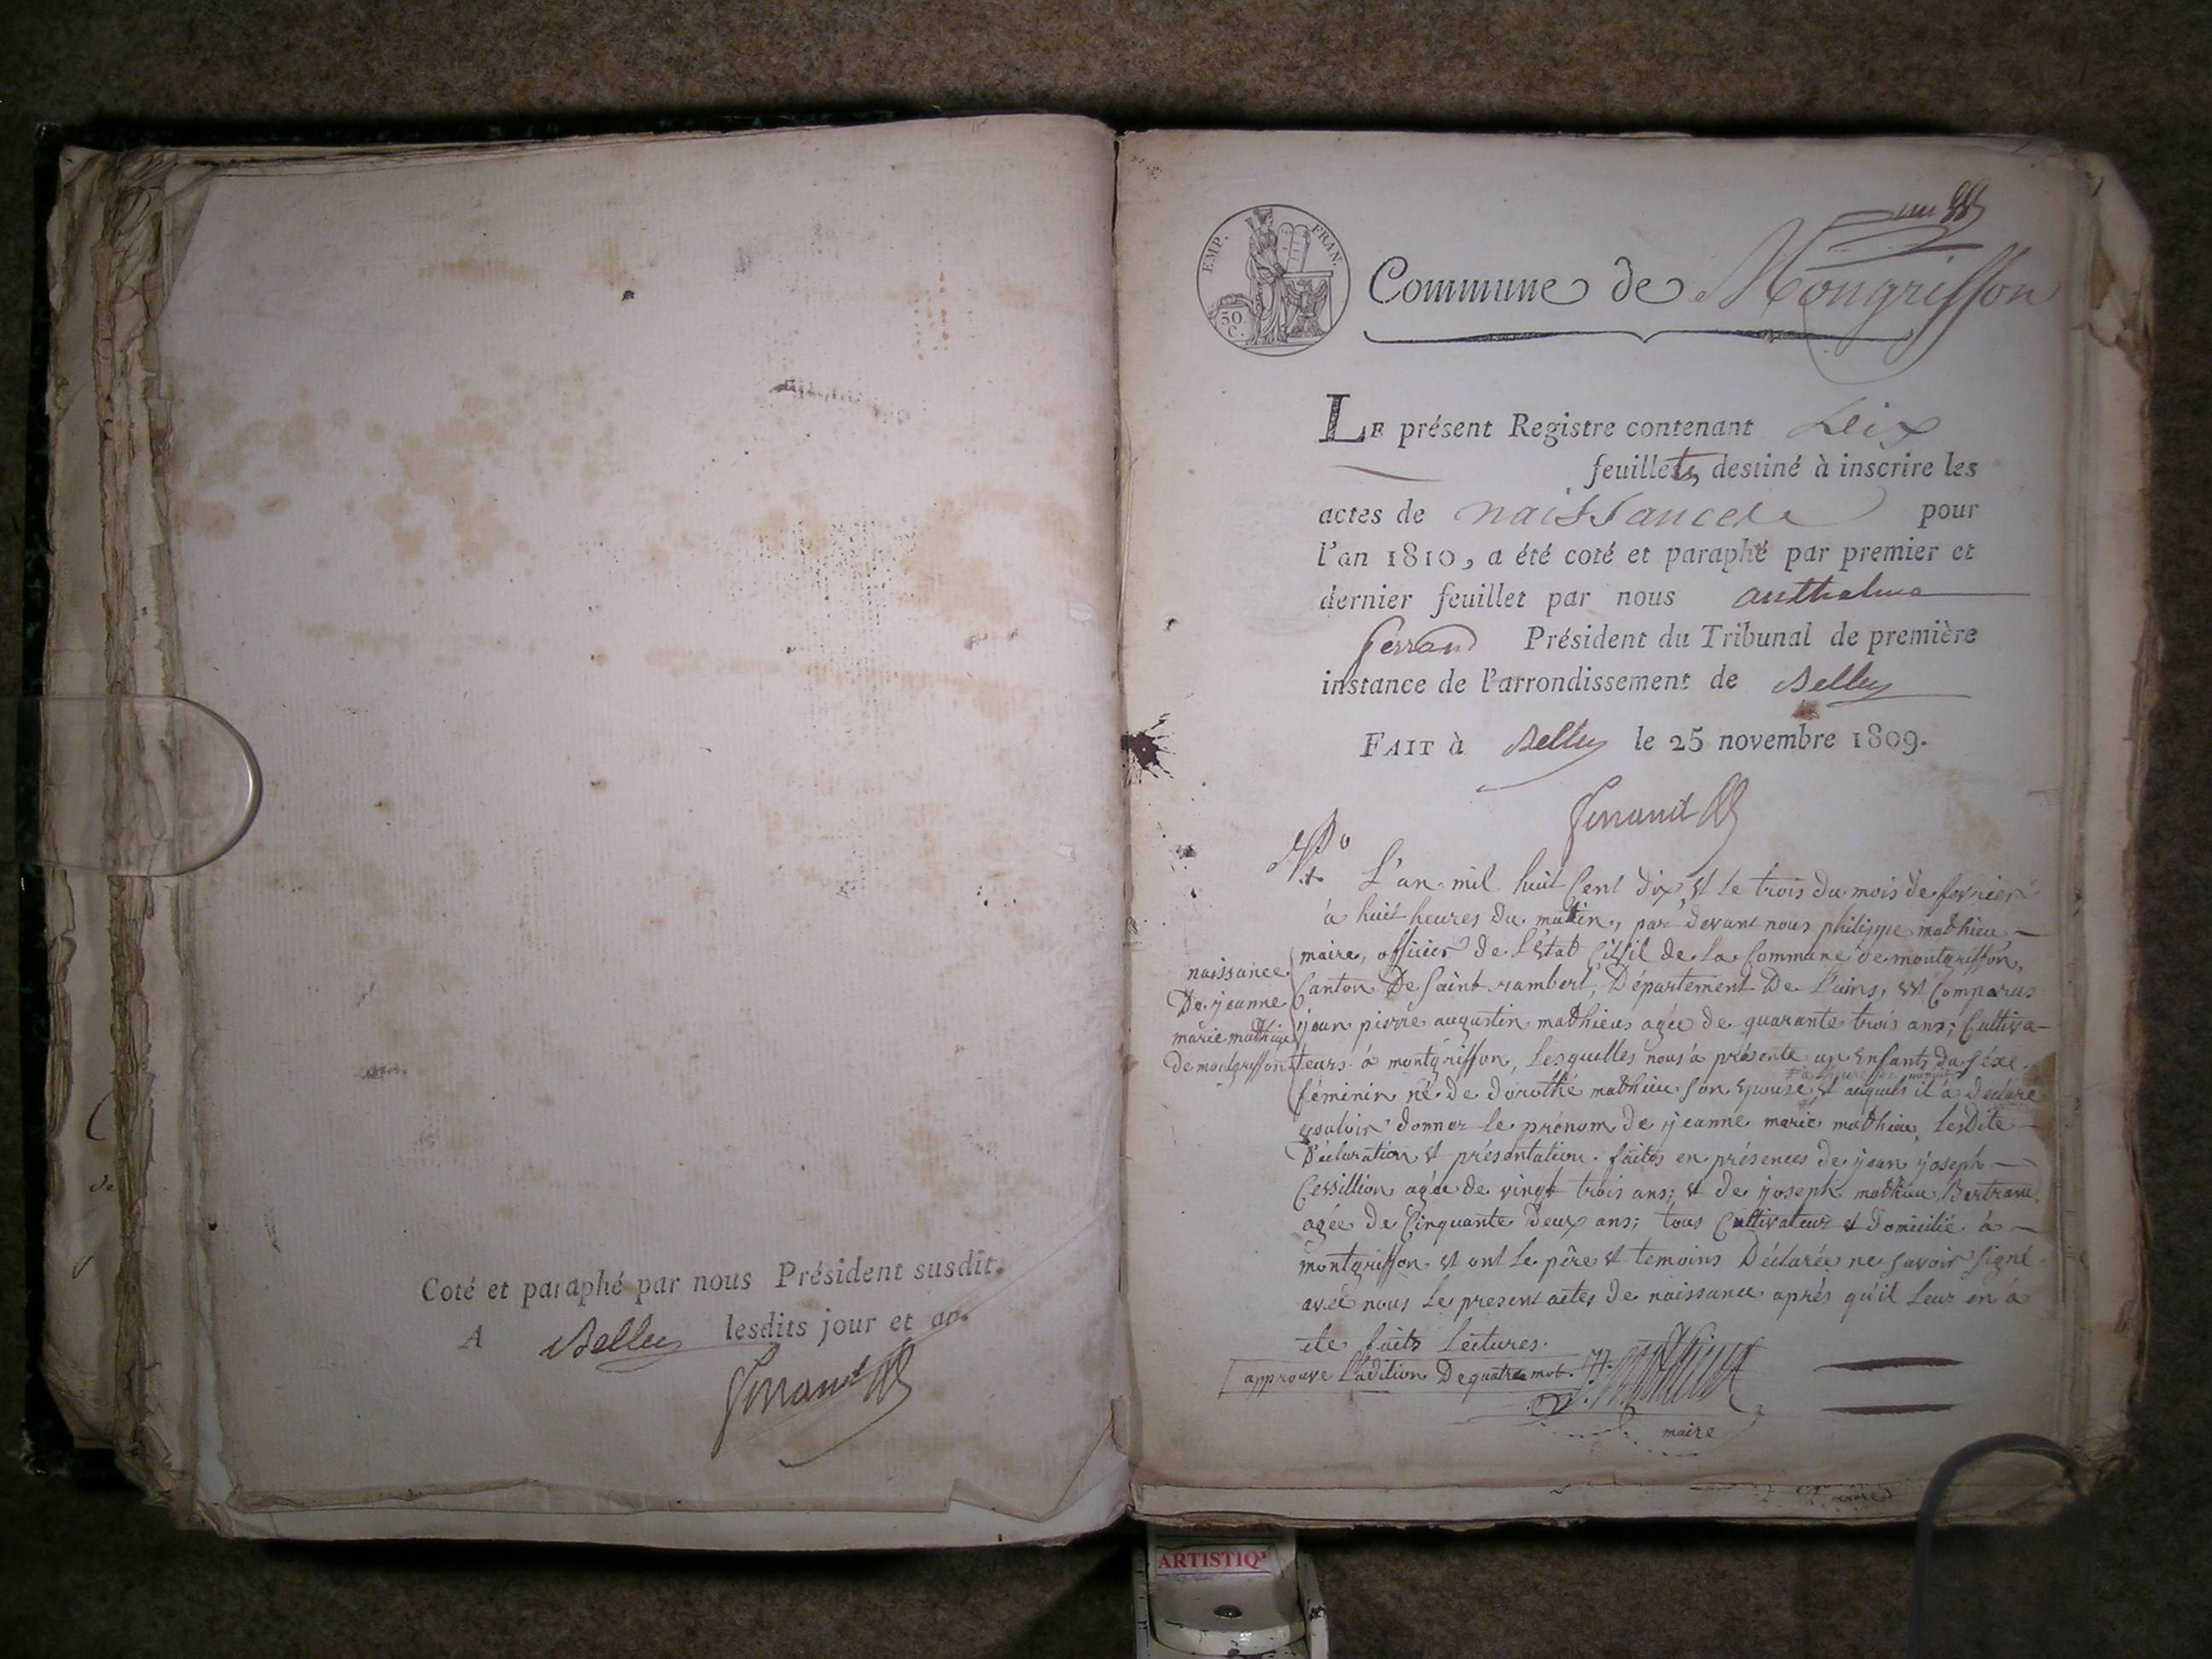 Coté et paraphé par nous Président susdit.
A Belley lesdits jour et an.
Ferrand
un
EMP. FRAN.
50.
C.
Commune de Mongriffon
LE présent Registre contenant Dix
feuillets, destiné à inscrire les
actes de naissance pour
l'an 1810, a été coté et paraphé par premier et
dernier feuillet par nous anthelme
ferrand Président du Tribunal de première
instance de l'arrondissement de Belley
FAIT à Belley le 25 novembre 1809.
Ferrand
L'an mil huit Cent dix, et le trois du mois de fevrier
à huit heures du matin, par devant nous philippe mathieu
maire, officier de L'Etat Citfil de La Commune de montgriffon,
Canton De Saint rambert, Département De L'ains, est Comparus
jean pierre augustin mathieus agée de quarante trois ans; Cultiva-
teurs à montgriffon, Lesquelles nous a présenté un Enfants du Séxe
féminin né de dorothé mathieu son Epouse, et auquels il a déclaré
vouloir donner le prénom de jeanne marie mathieu, Lesdite
Déclaration et présentation faites en présences de jean joseph
Cevillion agée de vingt trois ans; et de joseph mathieu Bertrand
agée de Cinquante Deux ans; tous Cultivateur et domicilié à
montgriffon et ont Le père et temoins Déclarée ne savoir signé
avec nous Le present actes de naissance après qu'il Leur en a
ete faits Lectures.
approuvé L'adition De quatre mot.
maire
naissance
De jeanne
marie mathieu
de montgriffon
ARTISTIQ